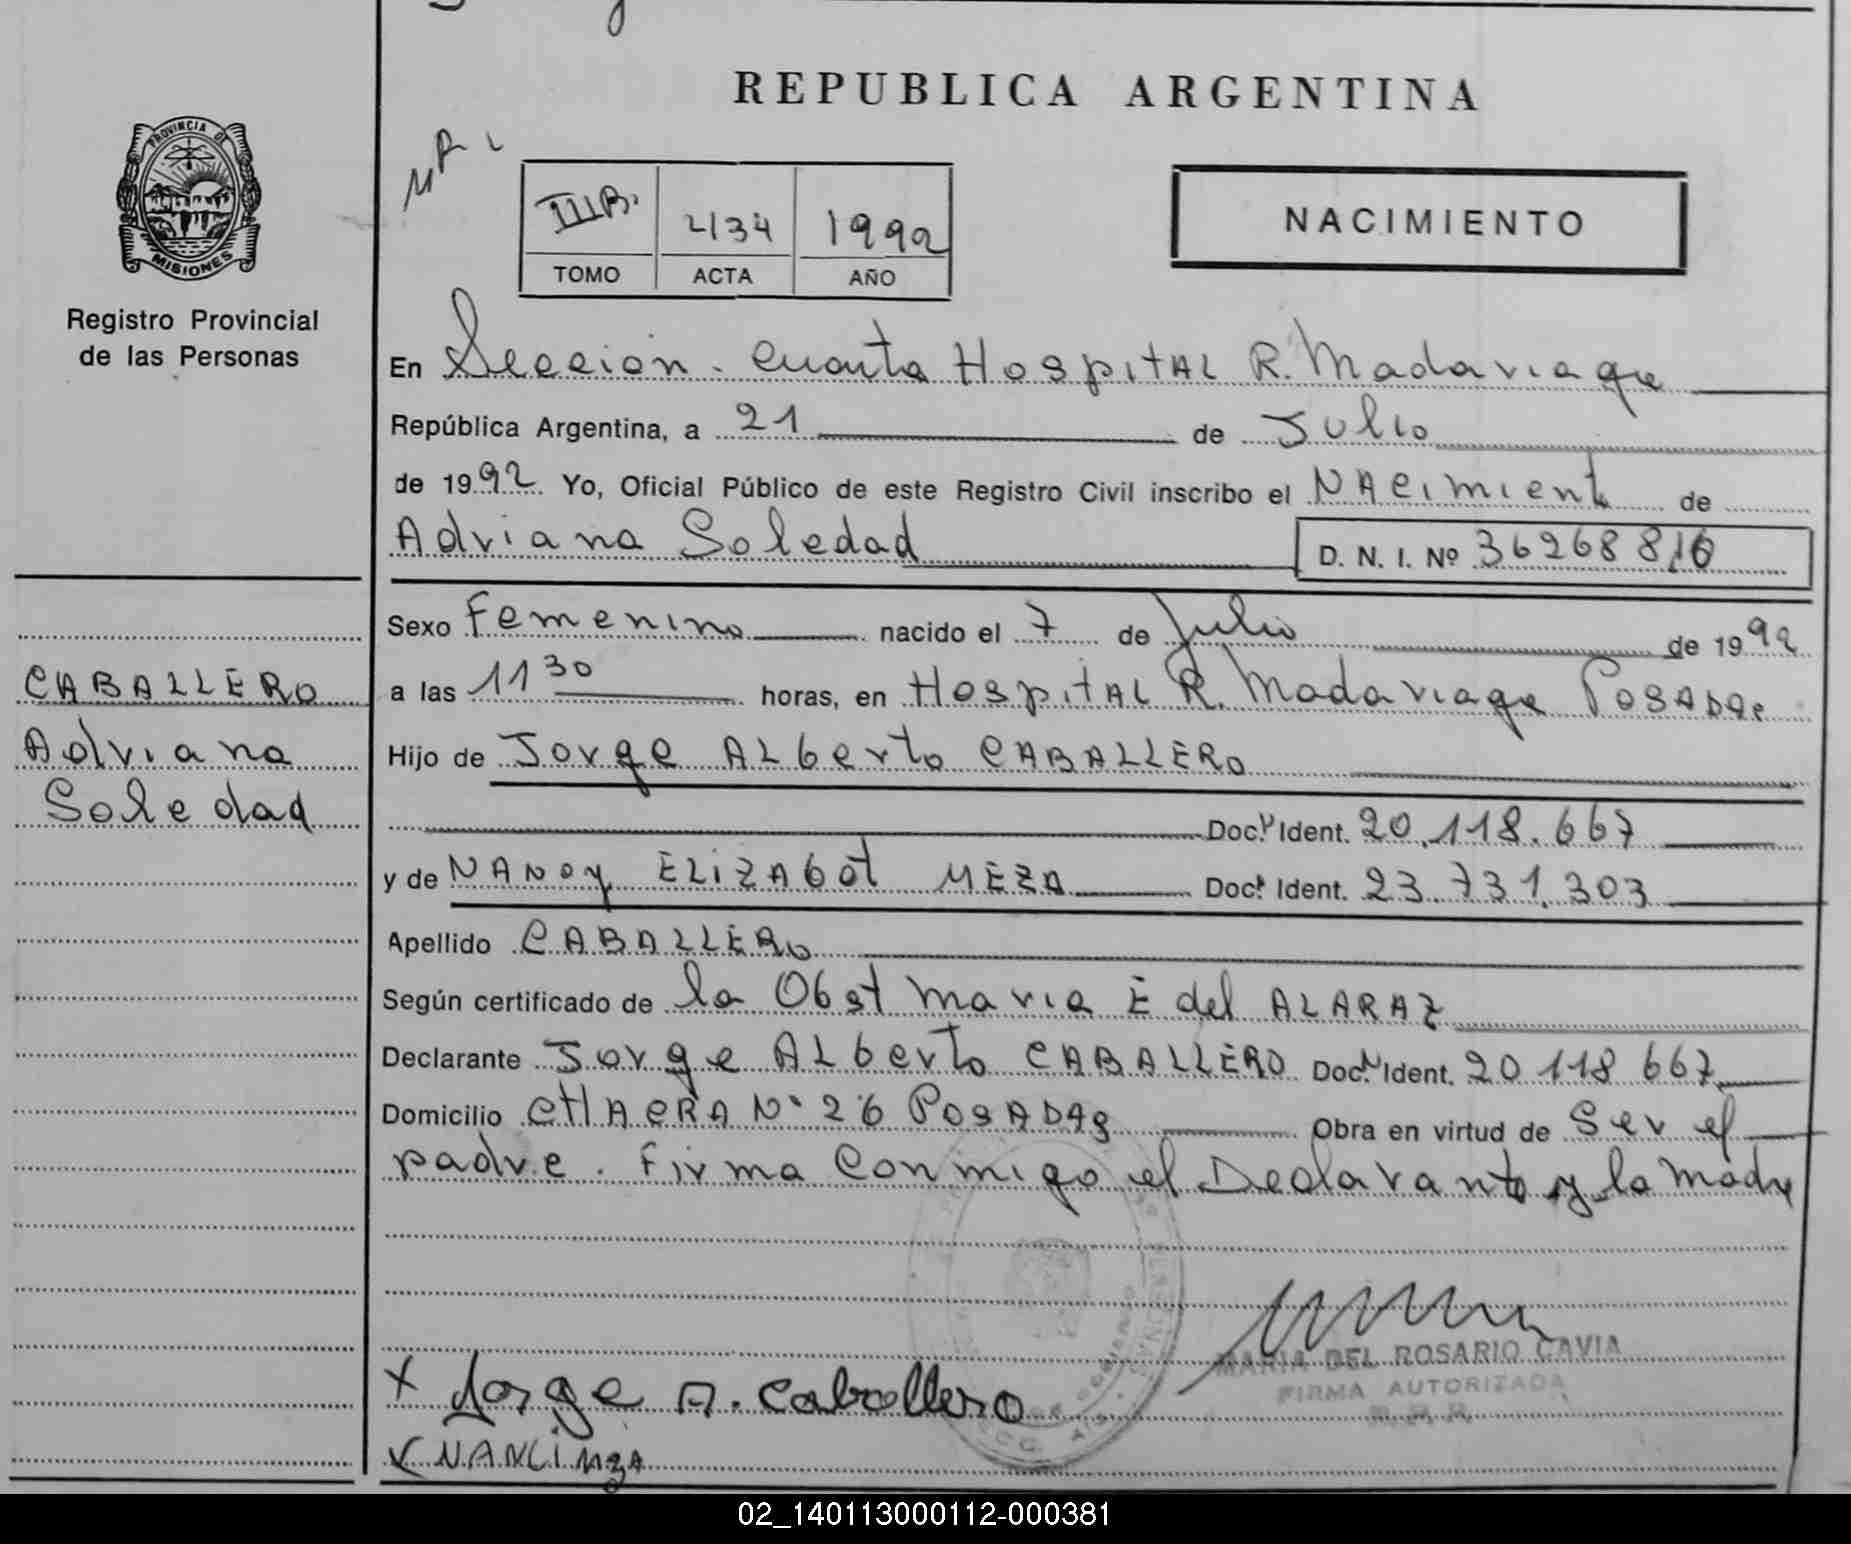 REPUBLICA ARGENTINA
PROVINCIA DE
MISIONES
Registro Provincial
de las Personas
IIIB. 2134 1992
TOMO ACTA AÑO
NACIMIENTO
En Seccion. Cuarta Hospital R. Madariaga
República Argentina, a 21 de Julio
de 1992 Yo, Oficial Público de este Registro Civil inscribo el NAcimient de
Adriana Soledad D. N. I. Nº 36268810
Sexo Femenino nacido el 7 de Julio de 1992
a las 11 30 horas, en Hospital R. Madariaga Posadas
Hijo de Jorge Alberto CABALLERO
Doc. Ident. 20.118.667
y de NANcy ELIZAbet MEZA Doc. Ident. 23.731.303
Apellido CABALLERO
Según certificado de la Obst Maria E del ALARAZ
Declarante Jorge Alberto CABALLERO Doc. Ident. 20 118 667
Domicilio CHACRA Nº 26 Posadas Obra en virtud de Ser el
padre. Firma Conmigo el Declarante y la Madre
CABALLERO
Adriana
Soledad
MARIA DEL ROSARIO CAVIA
FIRMA AUTORIZADA
X Jorge A. Caballero
02_140113000112-000381